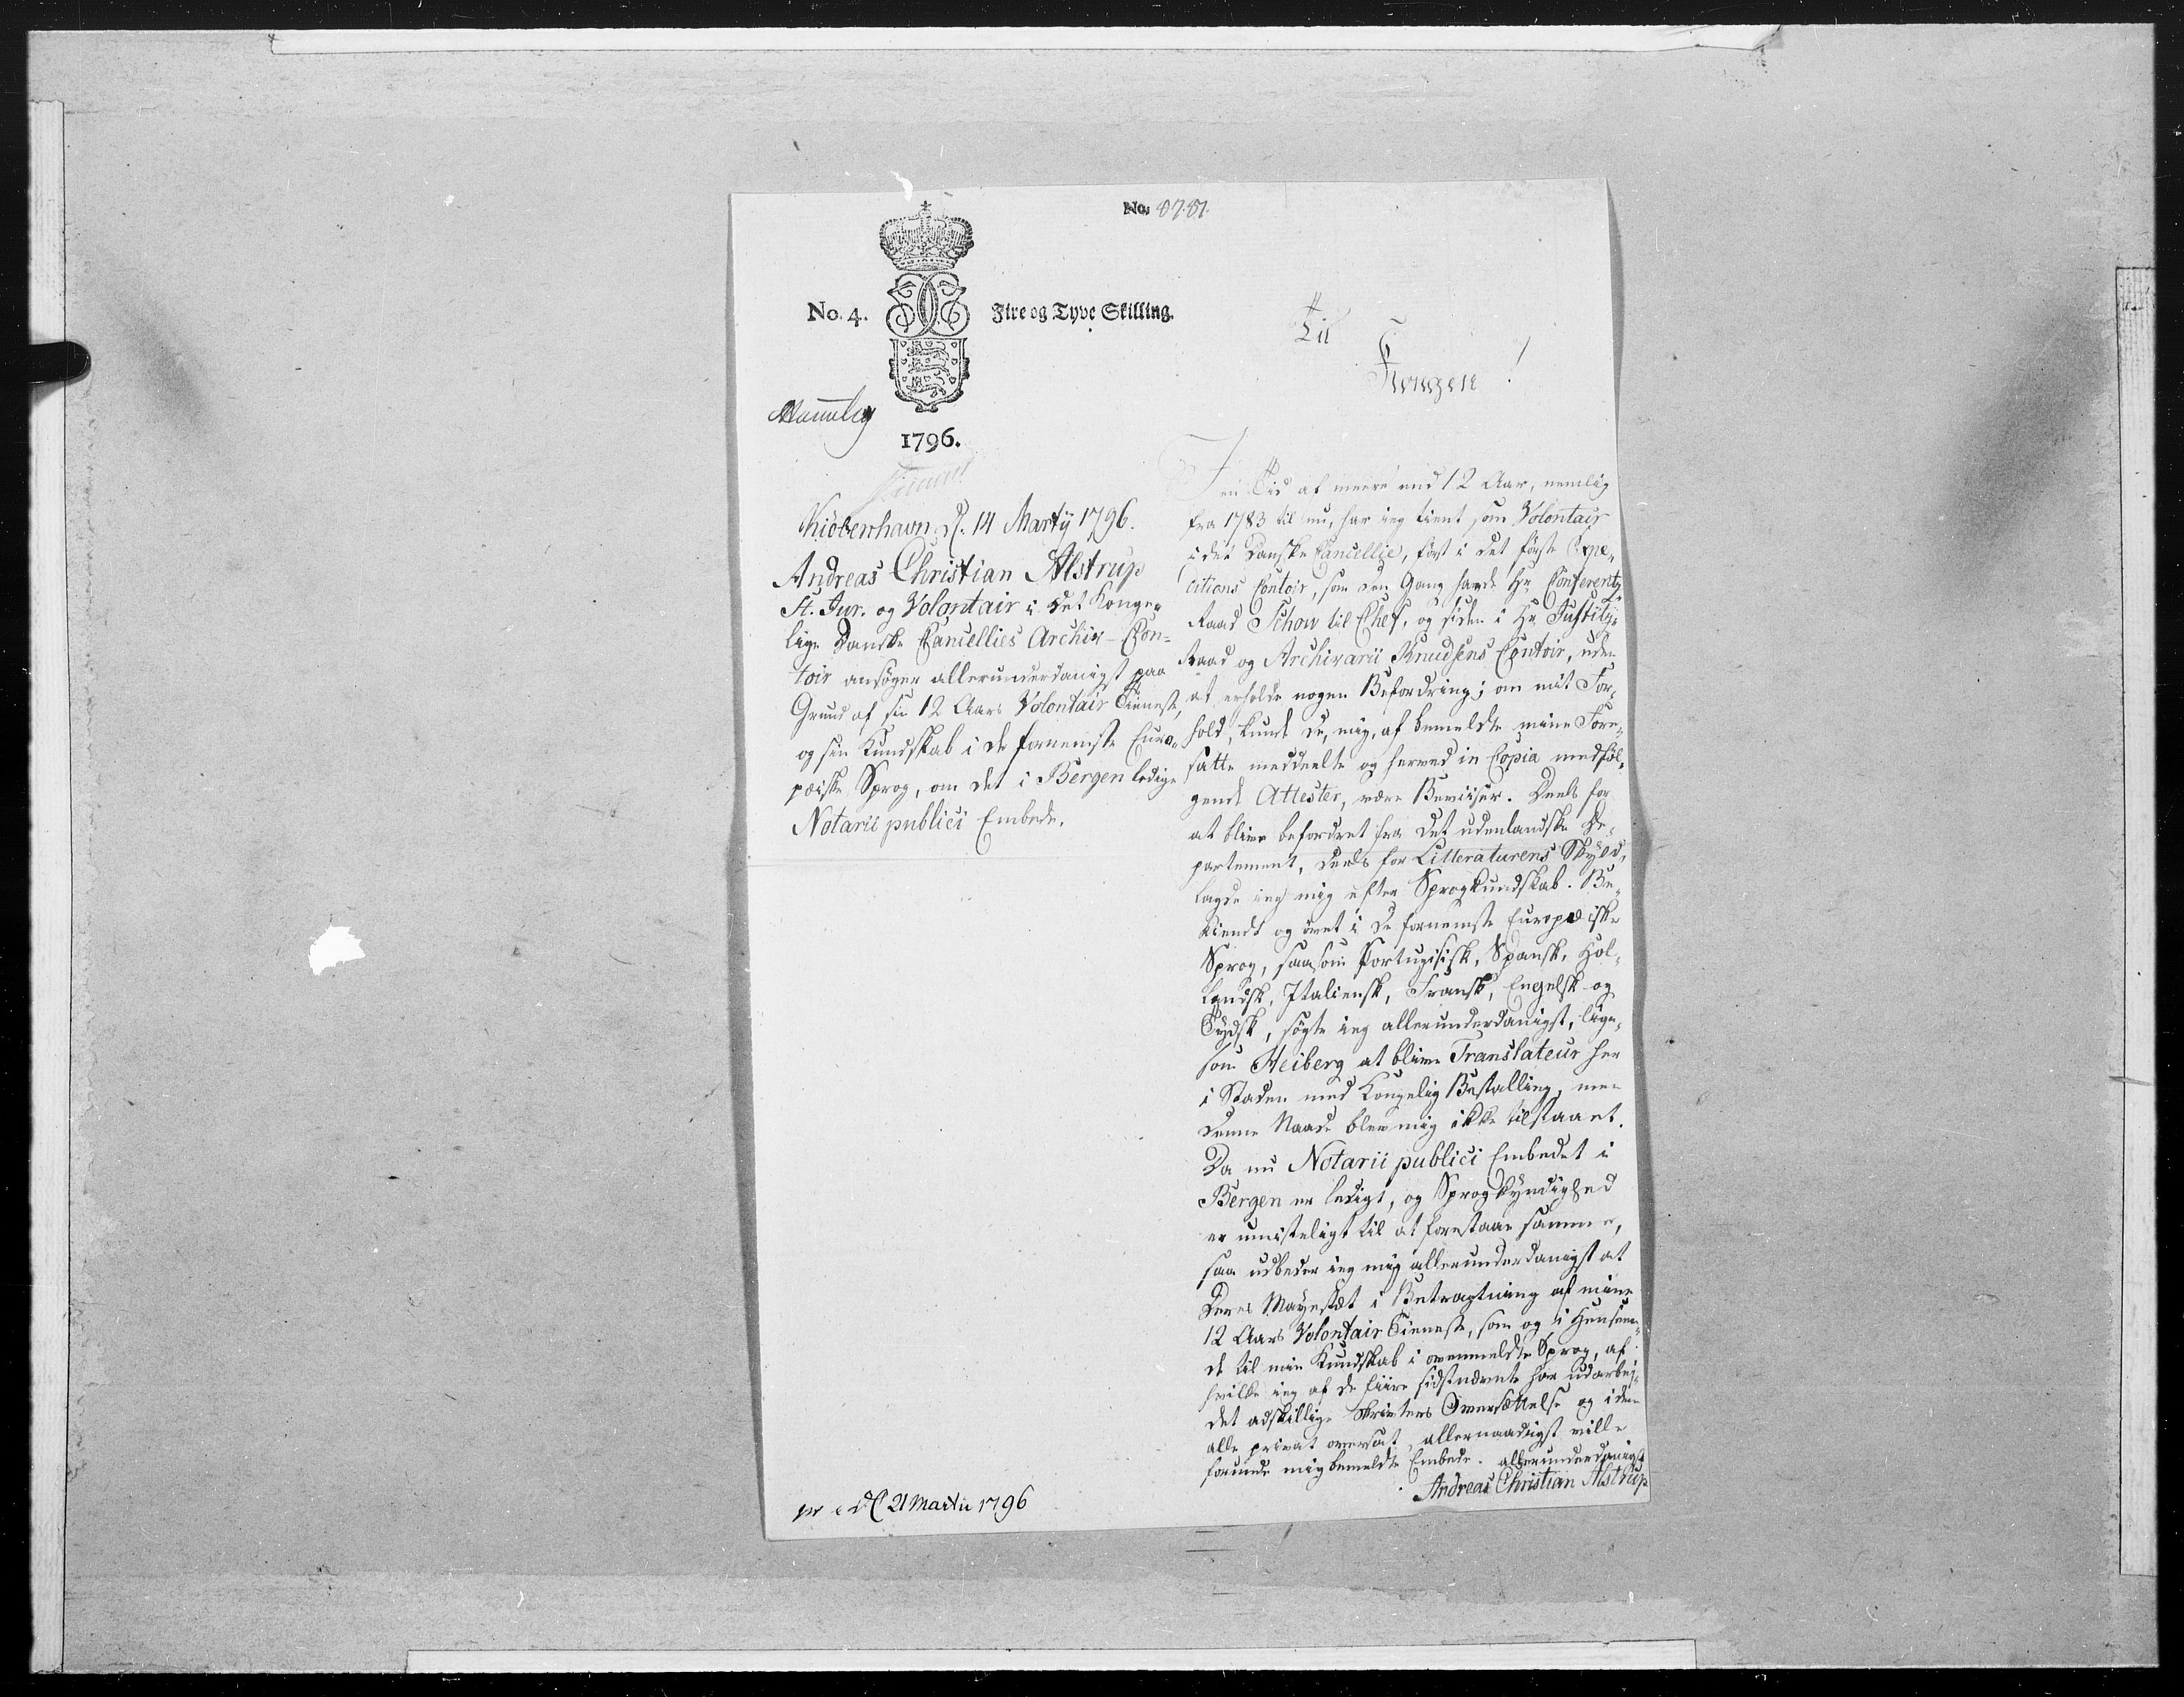 No. 8787.
No. 4.
Fire og Tyve Skilling.
1796.
Til
Kongen!
Kiöbenhavn, d. 14 Martij 1796.
Andreas Christian Alstrup
St. Jur. og Volontair i det Konge-
lige Danske Cancellies Archiv-Con-
toir ansøger allerunderdanigst paa
Grund af sin 12 Aars Volontair Tieneste,
og sin Kundskab i de fornemste Euro-
pæiske Sprog, om det i Bergen ledige
Notarii publici Embede.
I en Tid af meere end 12 Aar, nemlig
fra 1783 til nu, har jeg tient som Volontair
i det Danske Cancellie, først i det første Expe-
ditions Contoir, som den Gang havde Hr. Conferentz-
Raad Schow til Chef, og siden i Hr. Justitz-
Raad og Archivarii Knudsens Contoir, uden
at erholde nogen Befordring; om mit For-
hold, kunde de, mig, af bemeldte mine Fore-
satte meddeelte og herved in Copia medföl-
gende Attester, være Beviiser. Deels for
at blive befordret fra det udenlandske De-
partement, deels for Litteraturens Skyld,
lagde jeg mig efter Sprogkundskab. Be-
kiendt og övet i de fornemste Europæiske
Sprog, saasom Portugisisk, Spansk, Hol-
landsk, Italiensk, Fransk, Engelsk og
Tydsk, søgte jeg allerunderdanigst, lige-
som Heiberg at blive Translateur her
i Staden med Kongelig Bestalling, men
denne Naade blev mig ikke tilstaaet.
Da nu Notarii publici Embedet i
Bergen er ledigt, og Sprogkyndighed
er umisteligt til at forestaae samme,
saa udbeder jeg mig allerunderdanigst at
Deres Mayestæt i Betragtning af mine
12 Aars Volontair Tieneste, som og i Henseen-
de til min Kundskab i ovenmeldte Sprog, af
hvilke jeg af de fiire sidstnævnte har udarbej-
det adskillige Skrifters Oversættelse og i dem
alle privat oversat, allernaadigst ville
forunde mig bemeldte Embede. allerunderdanigst
Andreas Christian Alstrup
d 21 Martii 1796